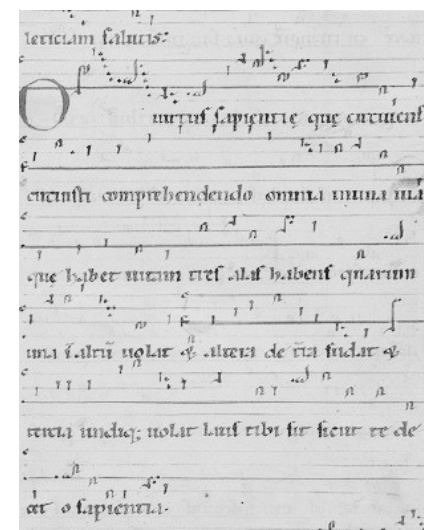 leticiam salutis.
O uirtus sapientię que circuiens
circuisti comprehendendo omnia in una uia
que habet uitam tres alas habens quarum
una ī altū uolat & altera de t̄ra sudat &
tercia undiq; uolat laus tibi sit sicut te de
cet o sapientia.